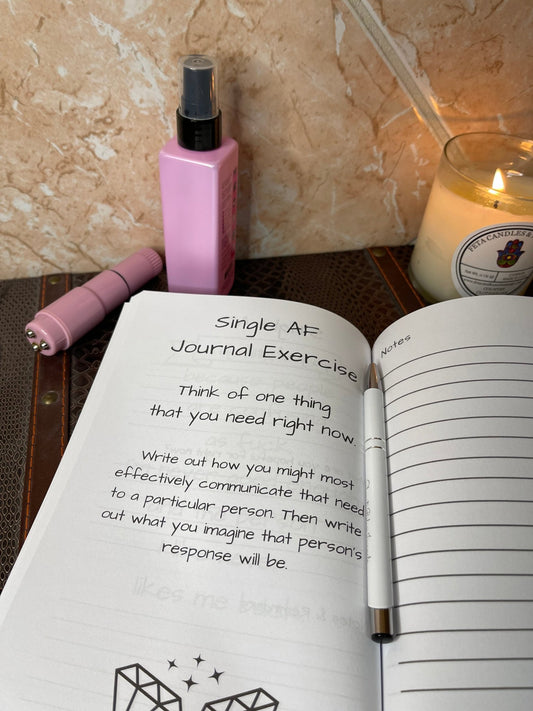 Single AF
Journal Exercise
Think of one thing
that you need right now.
Write out how you might most
effectively communicate that need
to a particular person. Then write
out what you imagine that person's
response will be.
Notes
FETA CANDLES &